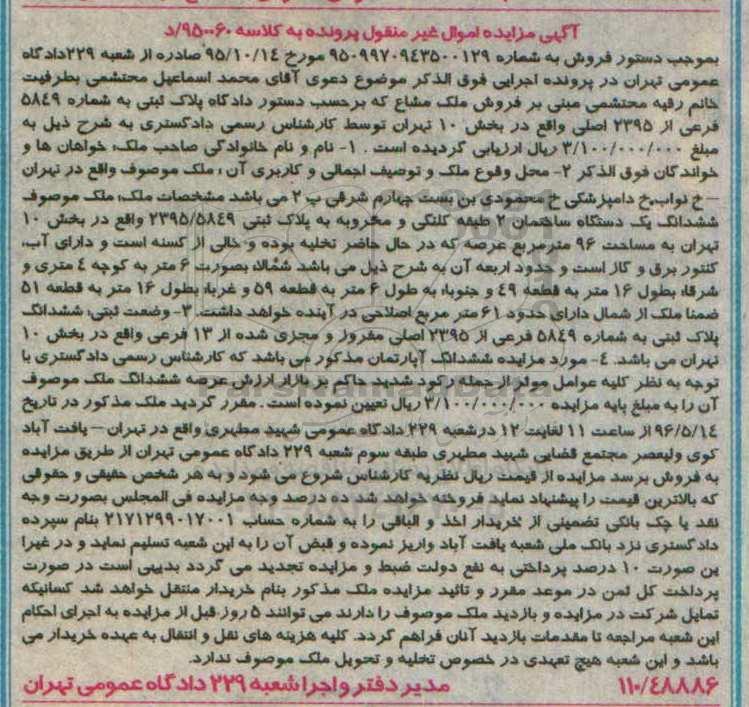 آگهی مزایده اموال غیر منقول پرونده به کلاسه ۹۵۰۰۶۰/د
بموجب دستور فروش به شماره ۹۵۰۹۹۷۰۹۴۳۵۰۰۱۲۹ مورخ ۹۵/۱۰/۱۴ صادره از شعبه ۲۲۹دادگاه
عمومی تهران در پرونده اجرایی فوق الذکر موضوع دعوی آقای محمد اسماعیل محتشمی بطرفیت
خانم رقیه محتشمی مبنی بر فروش ملک مشاع که برحسب دستور دادگاه پلاک ثبتی به شماره ۵۸۴۹
فرعی از ۲۳۹۵ اصلی واقع در بخش ۱۰ تهران توسط کارشناس رسمی دادگستری به شرح ذیل به
مبلغ ۳/۱۰۰/۰۰۰/۰۰۰ ریال ارزیابی گردیده است . ۱- نام و نام خانوادگی صاحب ملک: خواهان ها و
خواندگان فوق الذکر ۲- محل وقوع ملک و توصیف اجمالی و کاربری آن : ملک موصوف واقع در تهران
– خ نواب.خ دامپزشکی خ محمودی بن بست چهارم شرقی پ ۲ می باشد مشخصات ملک: ملک موصوف
ششدانگ یک دستگاه ساختمان ۲ طبقه کلنگی و مخروبه به پلاک ثبتی ۲۳۹۵/۵۸۴۹ واقع در بخش ۱۰
تهران به مساحت ۹۶ مترمربع عرصه که در حال حاضر تخلیه بوده و خالی از سکنه است و دارای آب،
کنتور برق و گاز است و حدود اربعه آن به شرح ذیل می باشد شمالا: بصورت ۶ متر به کوچه ۴ متری و
شرقا: بطول ۱۶ متر به قطعه ۴۹ و جنوبا: به طول ۶ متر به قطعه ۵۹ و غربا: بطول ۱۶ متر به قطعه ۵۱
ضمنا ملک از شمال دارای حدود ۶۱ متر مربع اصلاحی در آینده خواهد داشت. ۳- وضعت ثبتی: ششدانگ
پلاک ثبتی به شماره ۵۸۴۹ فرعی از ۲۳۹۵ اصلی مفروز و مجزی شده از ۱۳ فرعی واقع در بخش ۱۰
تهران می باشد. ۴- مورد مزایده ششدانگ آپارتمان مذکور می باشد که کارشناس رسمی دادگستری با
توجه به نظر کلیه عوامل موثر از جمله رکود شدید حاکم بر بازار ارزش عرصه ششدانگ ملک موصوف
آن را به مبلغ پایه مزایده ۳/۱۰۰/۰۰۰/۰۰۰ ریال تعیین نموده است . مقرر گردید ملک مذکور در تاریخ
۹۶/۵/۱۴ از ساعت ۱۱ لغایت ۱۲ درشعبه ۲۲۹ دادگاه عمومی شهید مطهری واقع در تهران – یافت آباد
کوی ولیعصر مجتمع قضایی شهید مطهری طبقه سوم شعبه ۲۲۹ دادگاه عمومی تهران از طریق مزایده
به فروش برسد مزایده از قیمت ریال نظریه کارشناس شروع می شود و به هر شخص حقیقی و حقوقی
که بالاترین قیمت را پیشنهاد نماید فروخته خواهد شد ده درصد وجه مزایده فی المجلس بصورت وجه
نقد یا چک بانکی تضمینی از خریدار اخذ و الباقی را به شماره حساب ۲۱۷۱۲۹۹۰۱۷۰۰۱ بنام سپرده
دادگستری نزد بانک ملی شعبه یافت آباد واریز نموده و قبض آن را به این شعبه تسلیم نماید و در غیرا
ین صورت ۱۰ درصد پرداختی به نفع دولت ضبط و مزایده تجدید می گردد بدیهی است در صورت
پرداخت کل ثمن در موعد مقرر و تائید مزایده ملک مذکور بنام خریدار منتقل خواهد شد کسانیکه
تمایل شرکت در مزایده و بازدید ملک موصوف را دارند می توانند ۵ روز قبل از مزایده به اجرای احکام
این شعبه مراجعه تا مقدمات بازدید آنان فراهم گردد. کلیه هزینه های نقل و انتقال به عهده خریدار می
باشد و این شعبه هیچ تعهدی در خصوص تخلیه و تحویل ملک موصوف ندارد.
۱۱۰/۴۸۸۸۶ مدیر دفتر و اجرا شعبه ۲۲۹ دادگاه عمومی تهران